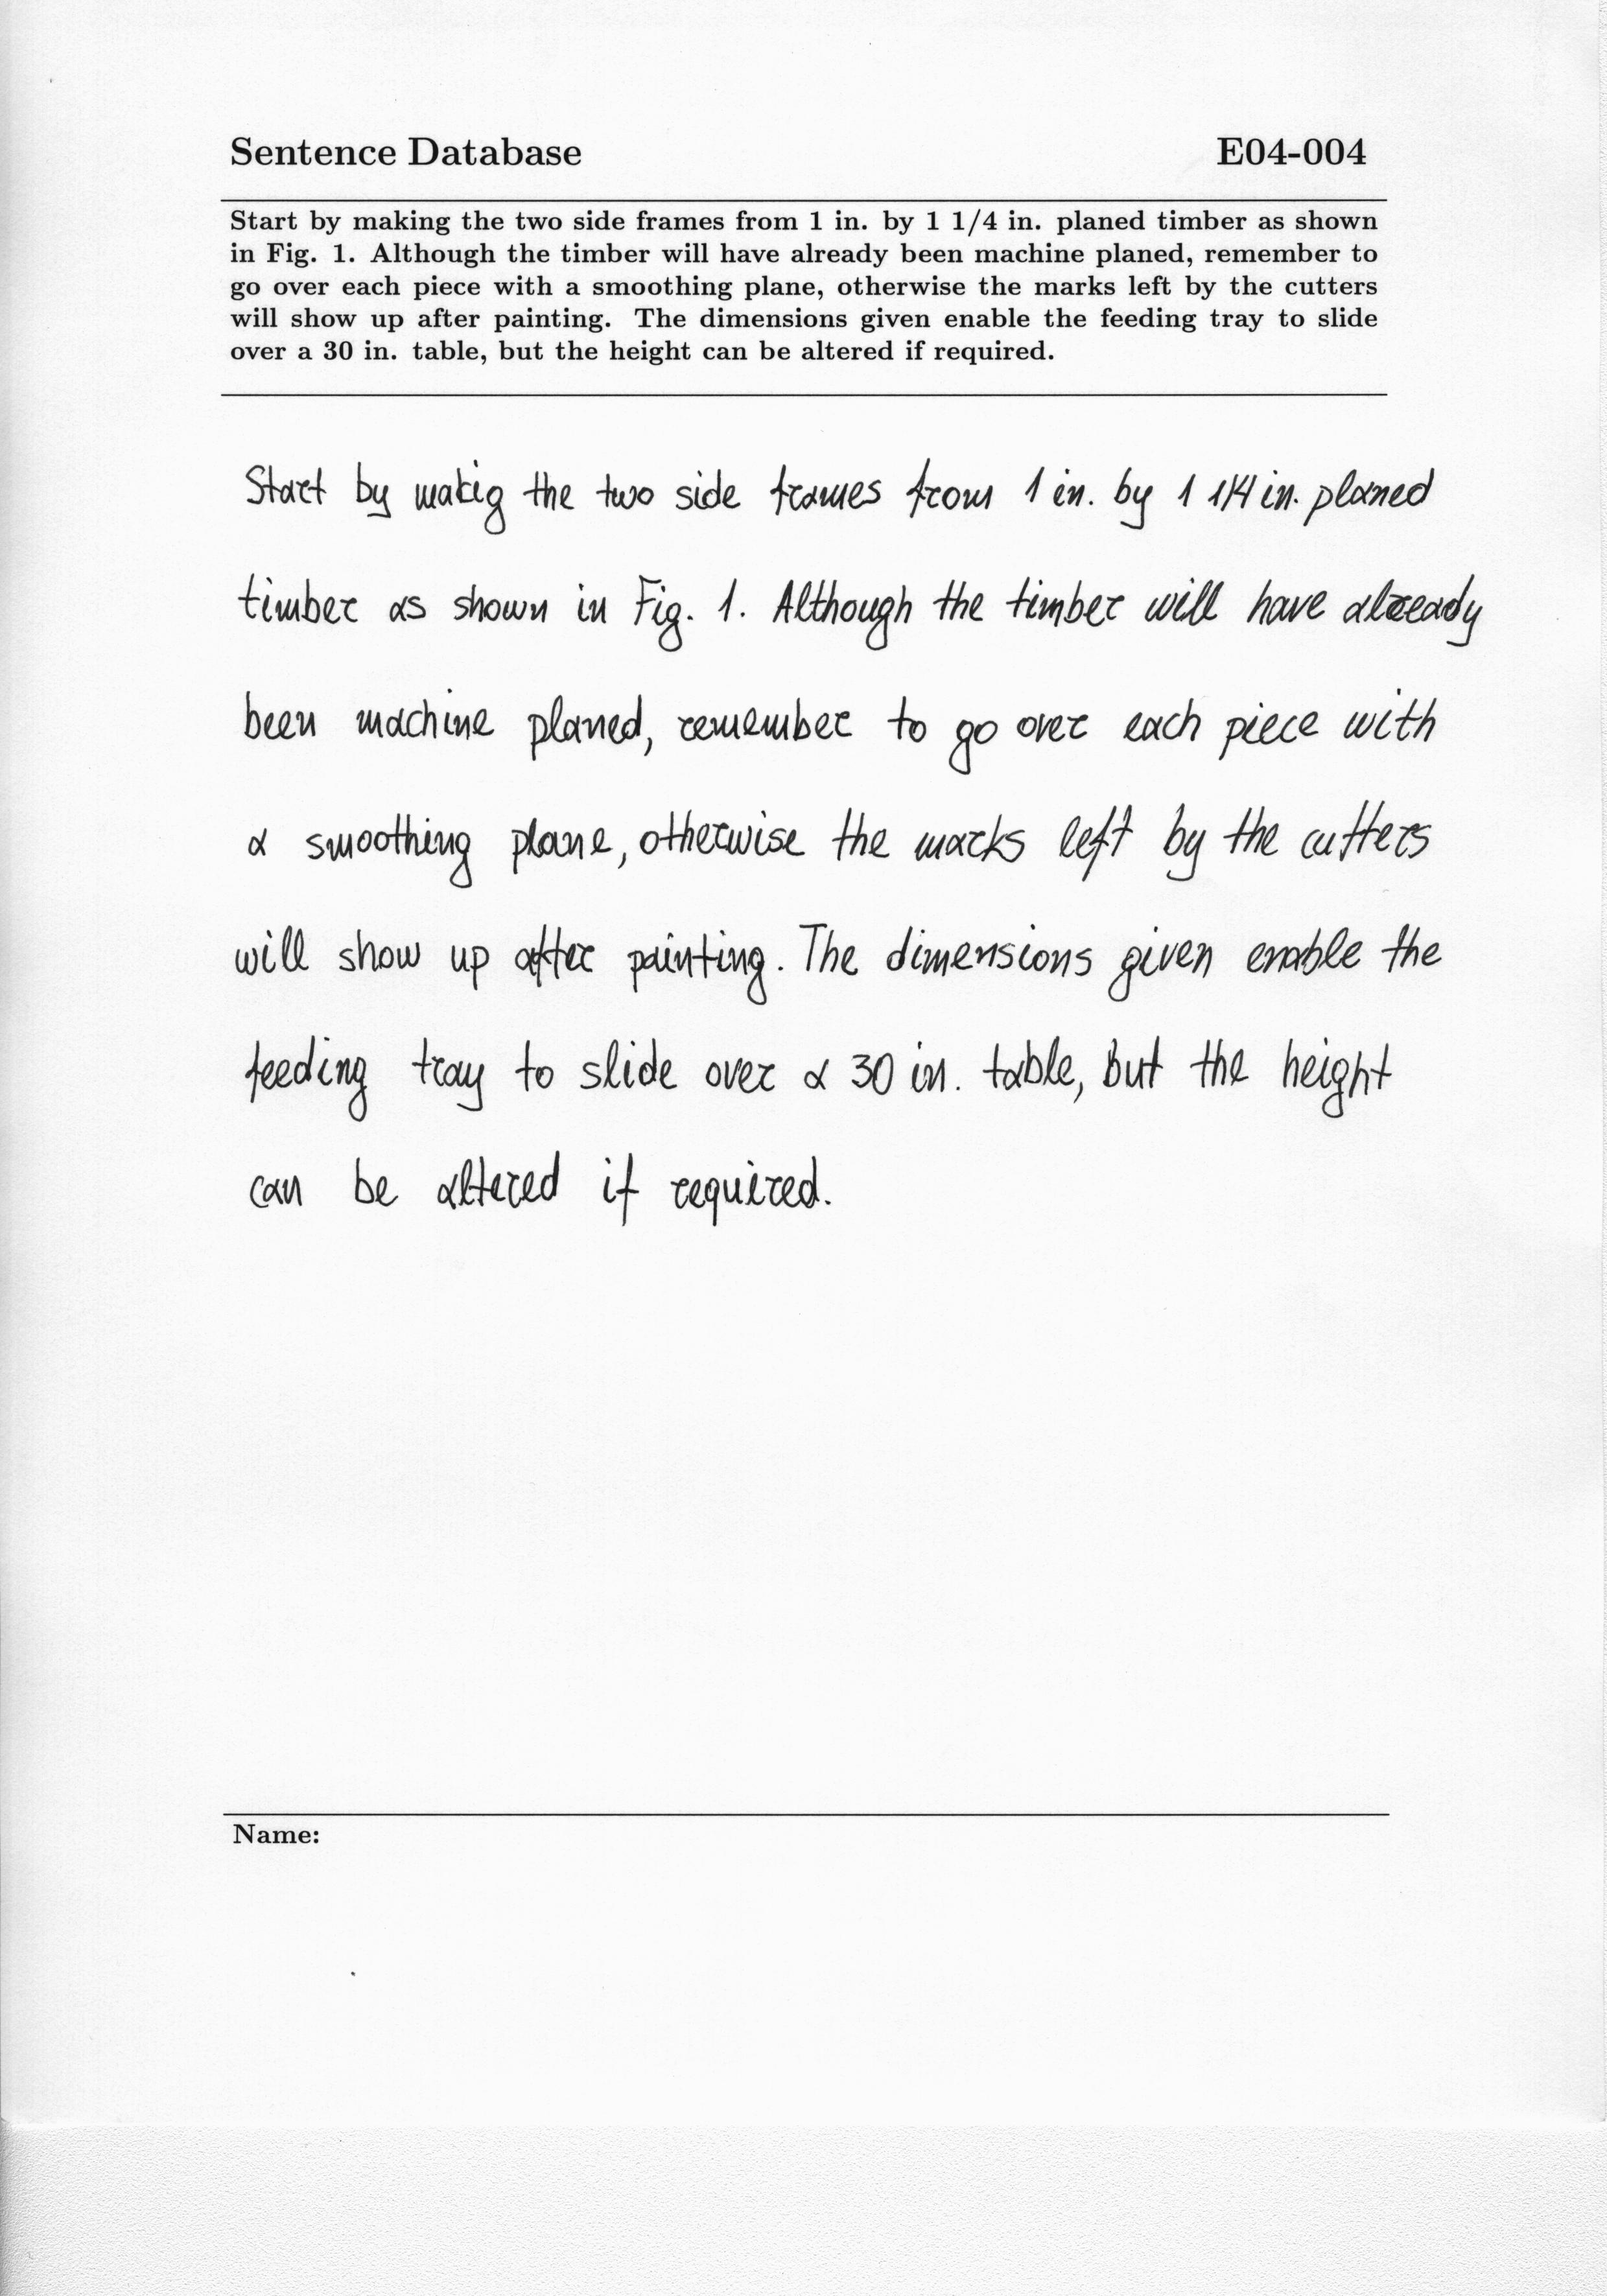 Sentence Database E04-004
Start by making the two side frames from 1 in. by 1 1/4 in. planed timber as shown
in Fig. 1. Although the timber will have already been machine planed, remember to
go over each piece with a smoothing plane, otherwise the marks left by the cutters
will show up after painting. The dimensions given enable the feeding tray to slide
over a 30 in. table, but the height can be altered if required.
Start by makig the two side frames from 1 in. by 1 1/4 in. planed
timber as shown in Fig. 1. Although the timber will have already
been machine planed, remember to go over each piece with
a smoothing plane, otherwise the marks left by the cutters
will show up after painting. The dimensions given enable the
feeding tray to slide over a 30 in. table, but the height
can be altered if required.
Name: